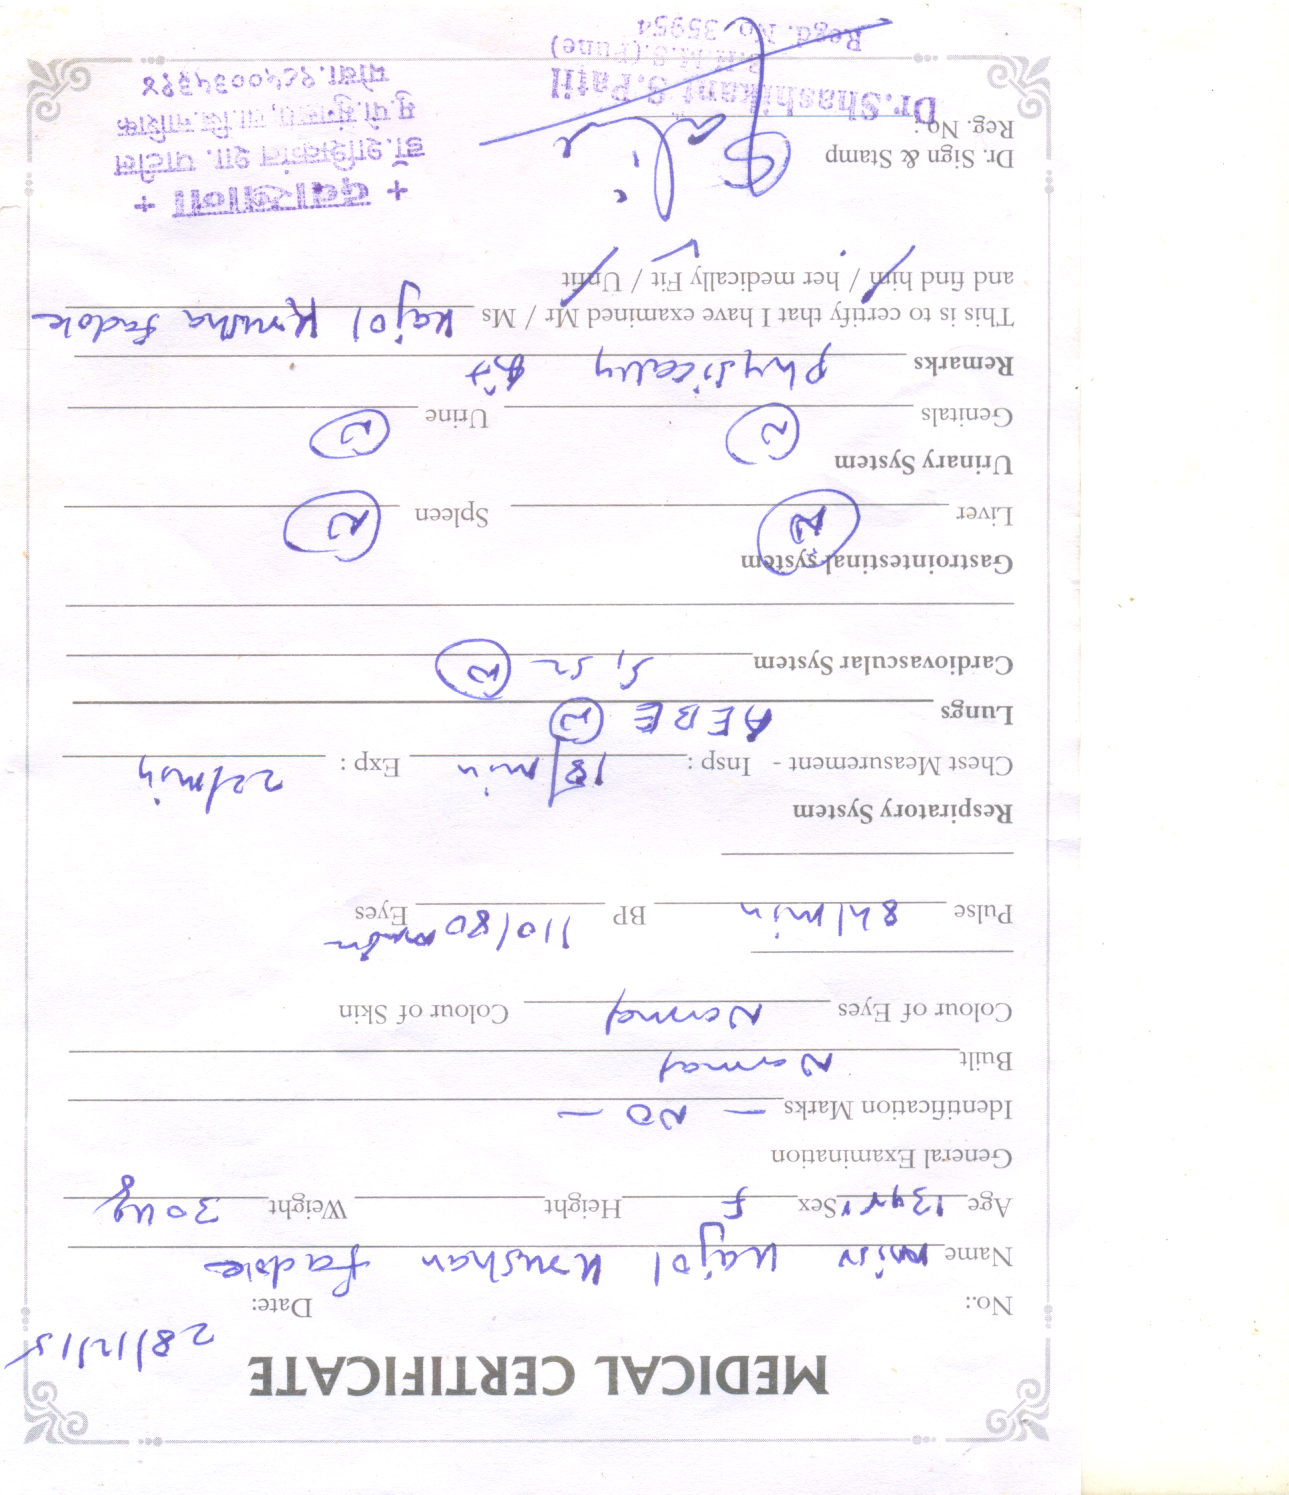 MEDICAL CERTIFICATE
No.: Date: 28/12/15
Name miss Kajol Krushna fadole
Age 13 yrs Sex F Height Weight 30 kg
General Examination
Identification Marks — NO —
Built Normal
Colour of Eyes Normal Colour of Skin
Pulse 84/min BP 110/80 Eyes
Respiratory System
Chest Measurement - Insp : 18/min Exp : 22/min
Lungs AEBE N
Cardiovascular System S1 S2 N
Gastrointestinal system
Liver N Spleen N
Urinary System
Genitals N Urine N
Remarks physically fit
This is to certify that I have examined Mr / Ms Kajol Krushna fadole
and find him / her medically Fit / Unfit
+ दवाखाना +
डॉ. शशिकांत शा. पाटील
Dr. Sign & Stamp
Reg. No.:
Dr. Shashikant S. Patil
B.H.M.S. (Pune)
Regd. No. 35954